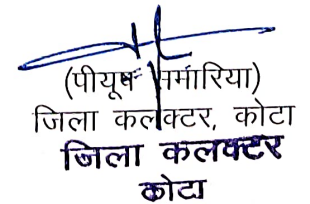 (पीयूष समारिया)
जिला कलक्टर, कोटा
जिला कलक्टर
कोटा